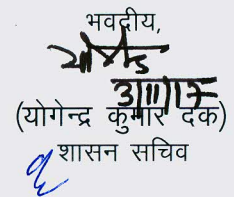 भवदीय,
3/11/17
(योगेन्द्र कुमार दक)
शासन सचिव